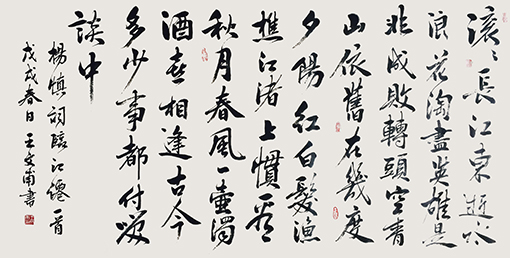 滾〻長江東逝水
浪花淘盡英雄是
非成敗轉頭空青
山依舊在幾度
夕陽紅白髮漁
樵江渚上慣看
秋月春風一壺濁
酒喜相逢古今
多少事都付笑
談中
楊慎詞臨江僊一首
戊戌春日王文甫書